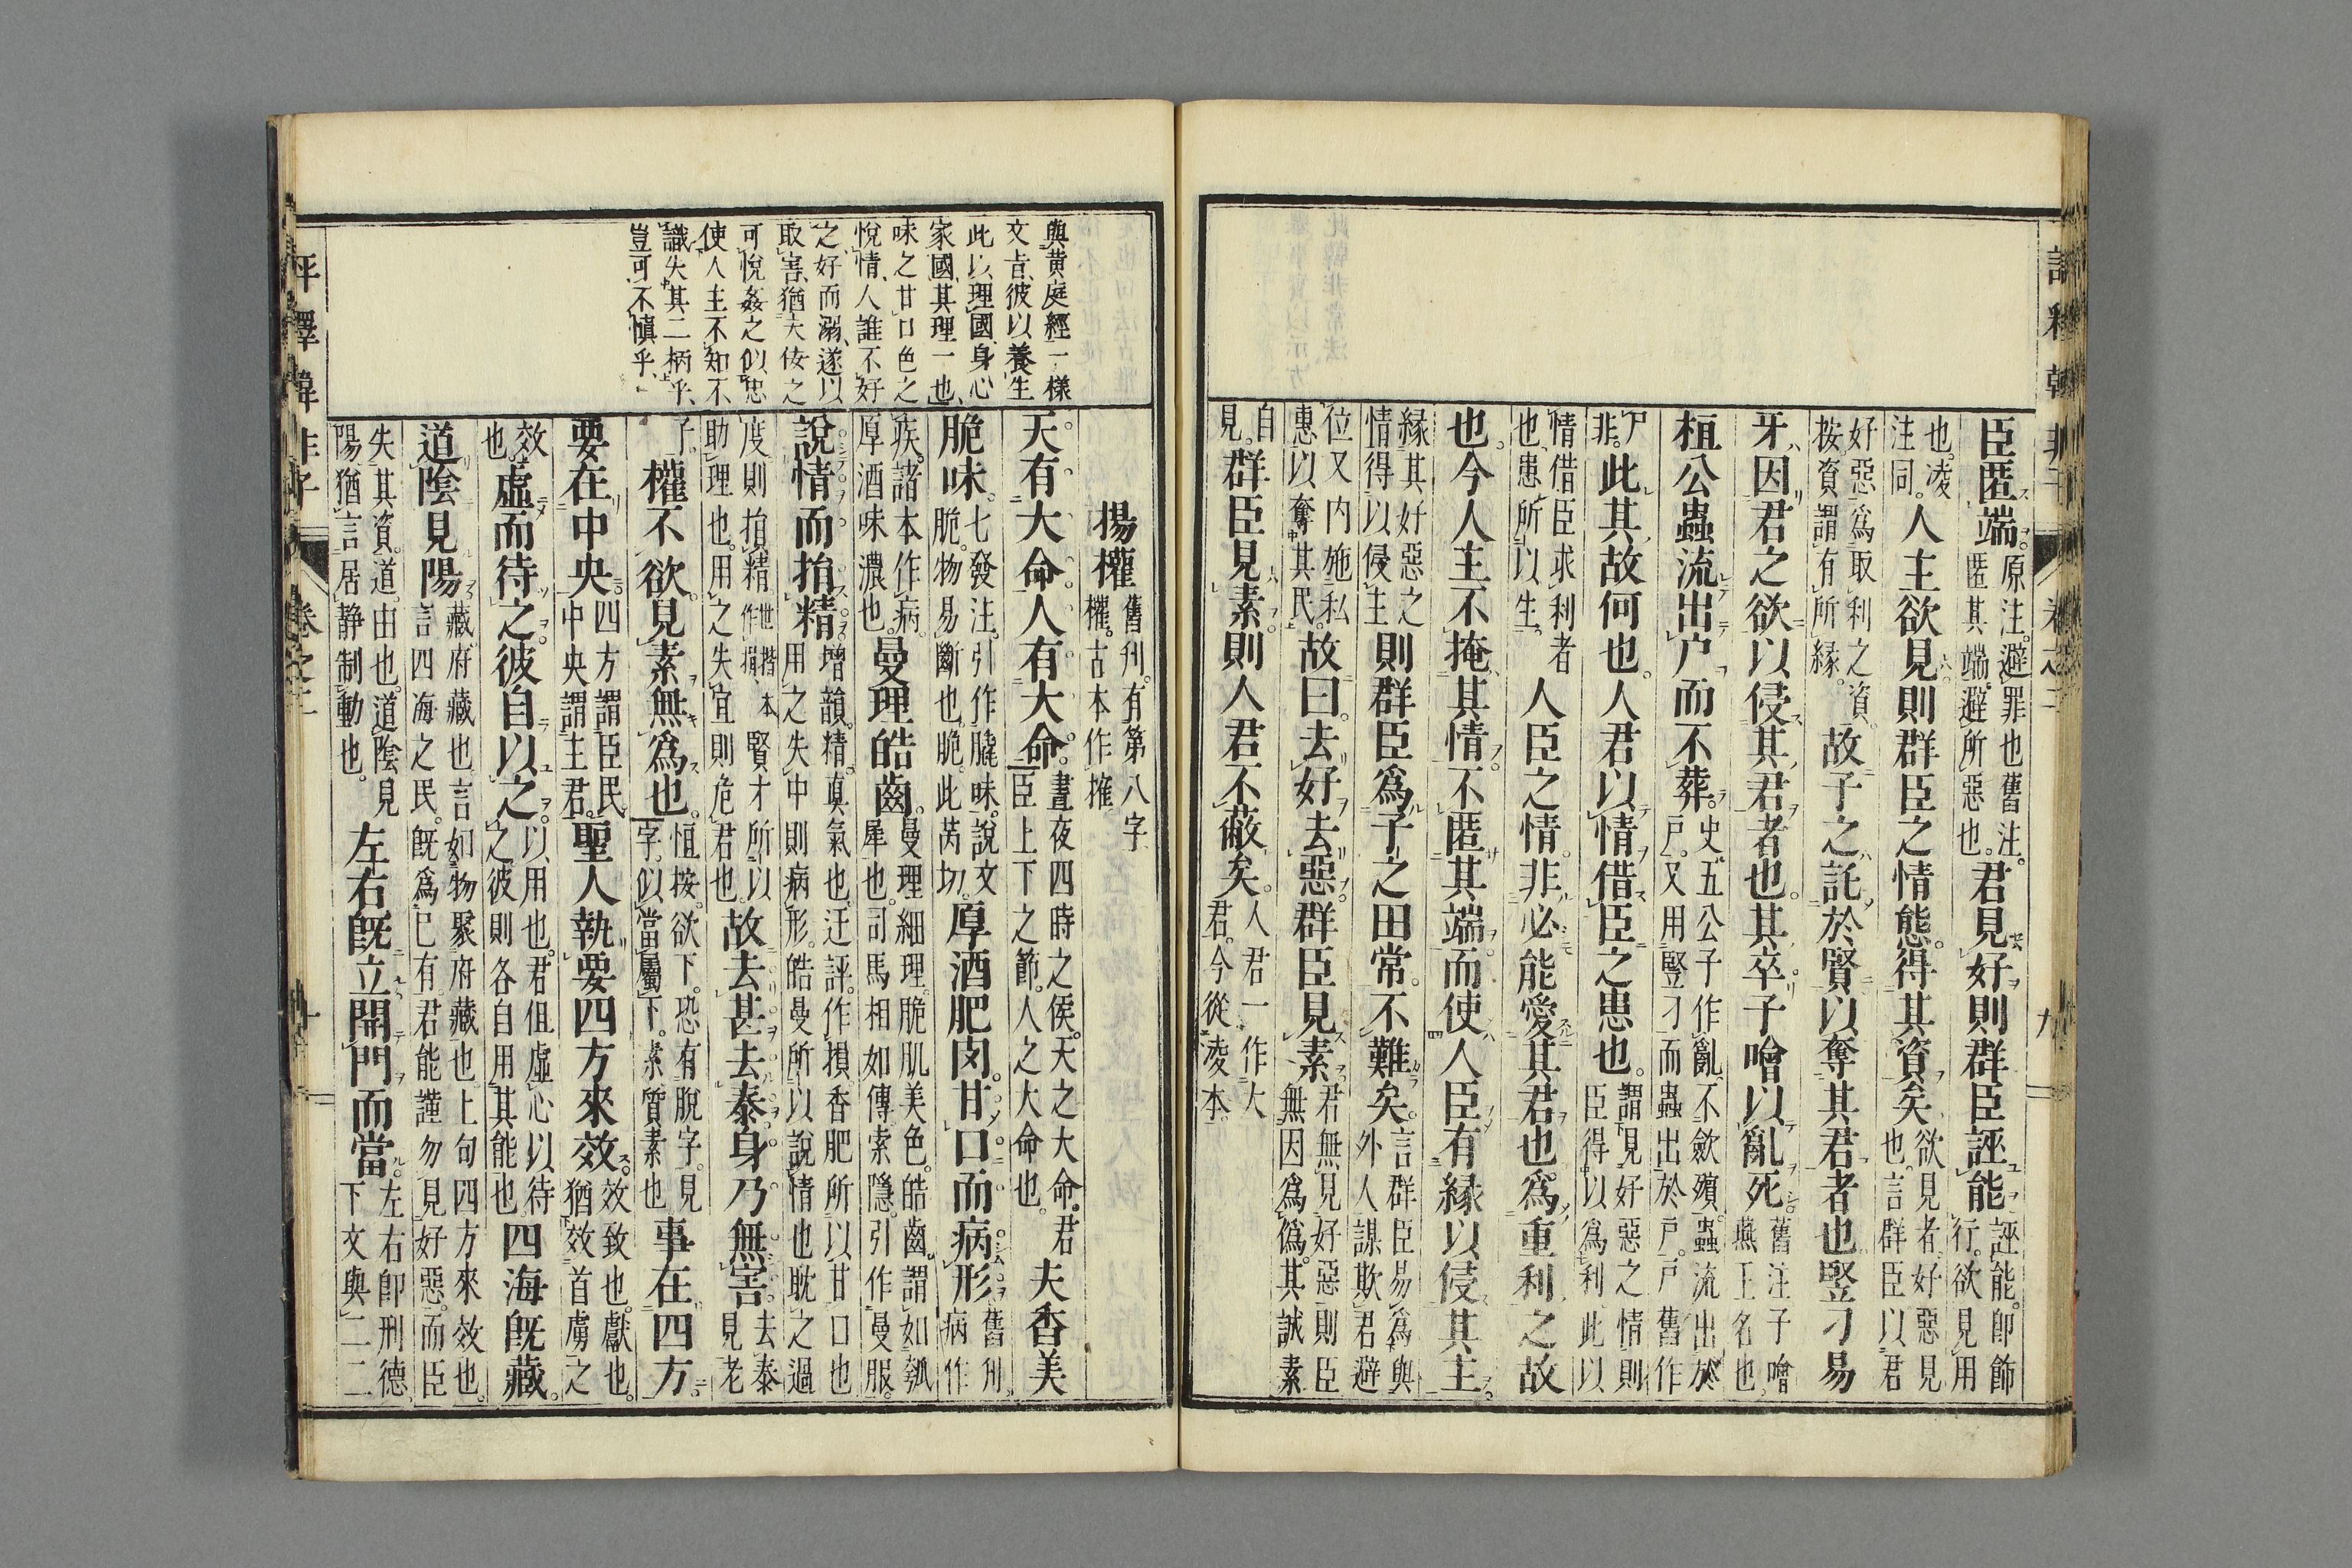 臣匿端。原注。避罪也舊注。匿其端。避所惡也。君見好則群臣誣能誣能。卽飾行。欲見用
也。凌注同。人主欲見則群臣之情態。得其資矣欲見者好惡見也。言群臣以君
好惡爲取利之資。按資謂有所縁。故子之託於賢以奪其君者也竪刁易
牙、因君之欲以侵其君者也。其卒子噲以亂死。舊注子噲燕王名也
桓公蟲流出户而不葬。史五公子作亂不歛殯。蟲流出於戸。又用竪刁而蟲出於戸。戸舊作
尸非。此其故何也。人君以情借臣之患也。謂見好惡之情則臣得以爲利此以
情借臣求利者也、患所以生。人臣之情。非必能愛其君也。爲重利之故
也。今人主不掩其情。不匿其端。而使人臣有縁以侵其主。
縁其好惡之情得以侵主則群臣爲子之田常。不難矣。言群臣易爲與外人謀欺君避
位又内施私惠以奪其民。故曰。去好去惡。群臣見素。君無見好惡則臣無因爲僞。其誠素
自見。群臣見素。則人君不蔽矣。人君一作大君。今從凌本。
評釋韓非子 卷之二 九
與黄庭經一樣
文旨、彼以養生
此以理國、身心
家國、其理一也、
味之甘口色之
悅情、人誰不好
之、好而溺、遂以
取害、猶大佞之
可悅姦之似忠
使人主不知不
識、失其二柄乎、
豈可不愼乎、
揚權舊刋。有第八字權。古本作搉
天有大命。人有大命。晝夜四時之侯。天之大命。君臣上下之節。人之大命也。夫香美
脆味。七發注。引作脆味。說文脆。物易斷也。脆。此芮切。厚酒肥肉。甘口而病形。舊刋。病作
疾。諸本作病。厚酒味濃也。曼理皓齒。曼理細理。脆肌美色。皓齒謂如瓠犀也。司馬相如傳索隱。引作曼服。
說情而損精。增韻。精。眞氣也迂評。作損香肥所以甘口也用之失中則病形。皓曼所以說情也耽之過
度則損精世作損、楷本賢才所以助理也。用之失宜則危君也故去甚去泰身乃無害。去泰見老
子。權不欲見素無爲也。恒按。欲下。恐有脫字。見字。似當屬下。素質素也事在四方。
要在中央四方謂臣民中央謂主君。聖人執要四方來效。效致也。獻也。猶效首虜之
效也。虛而待之彼自以之。以用也。君但虛心以待之彼則各自用其能也四海既藏。
道陰見陽藏府藏也言如物聚府藏也上句四方來效也。言四海之民。既爲已有。君能謹勿見好惡。而臣
失其資。道。由也。道陰見陽猶言居静制動也。左右既立開門而當。左右卽刑德、下文與二二
評釋韓非子 卷之二 十